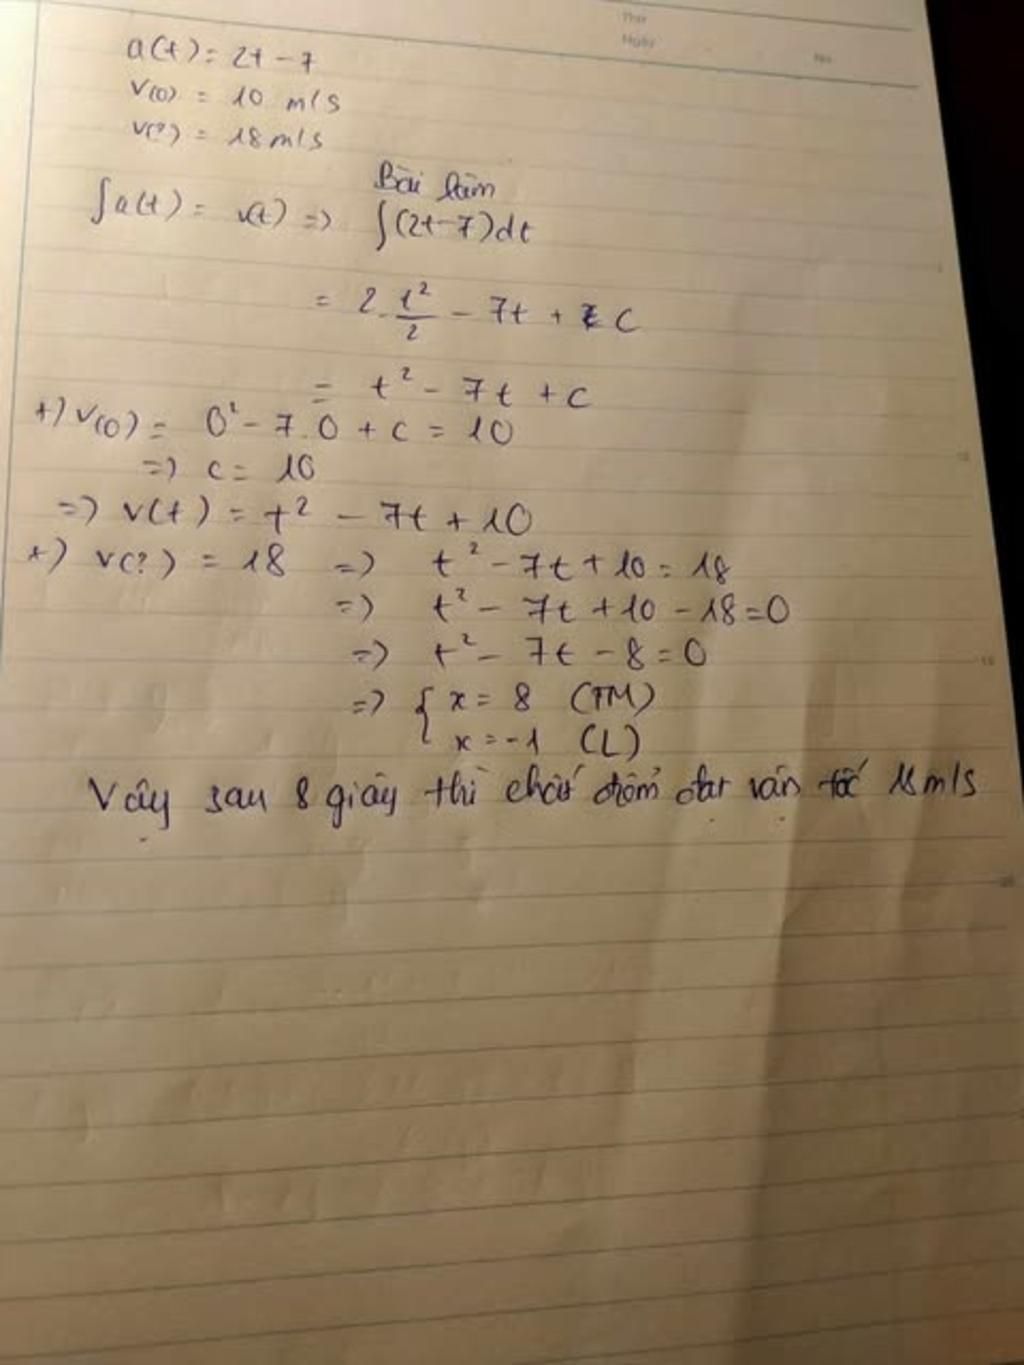 Thứ
Ngày
No.
a(t) = 2t - 7
v(0) = 10 m/s
v(?) = 18 m/s
Bài làm
∫a(t) = v(t) => ∫(2t-7)dt
= 2. t²/2 - 7t + C
= t² - 7t + c
+) v(0) = 0² - 7.0 + c = 10
=> c = 10
=> v(t) = t² - 7t + 10
+) v(?) = 18 => t² - 7t + 10 = 18
=> t² - 7t + 10 - 18 = 0
=> t² - 7t - 8 = 0
=> { x = 8 (TM)
x = -1 (L)
Vậy sau 8 giây thì chất điểm đạt vận tốc 18 m/s